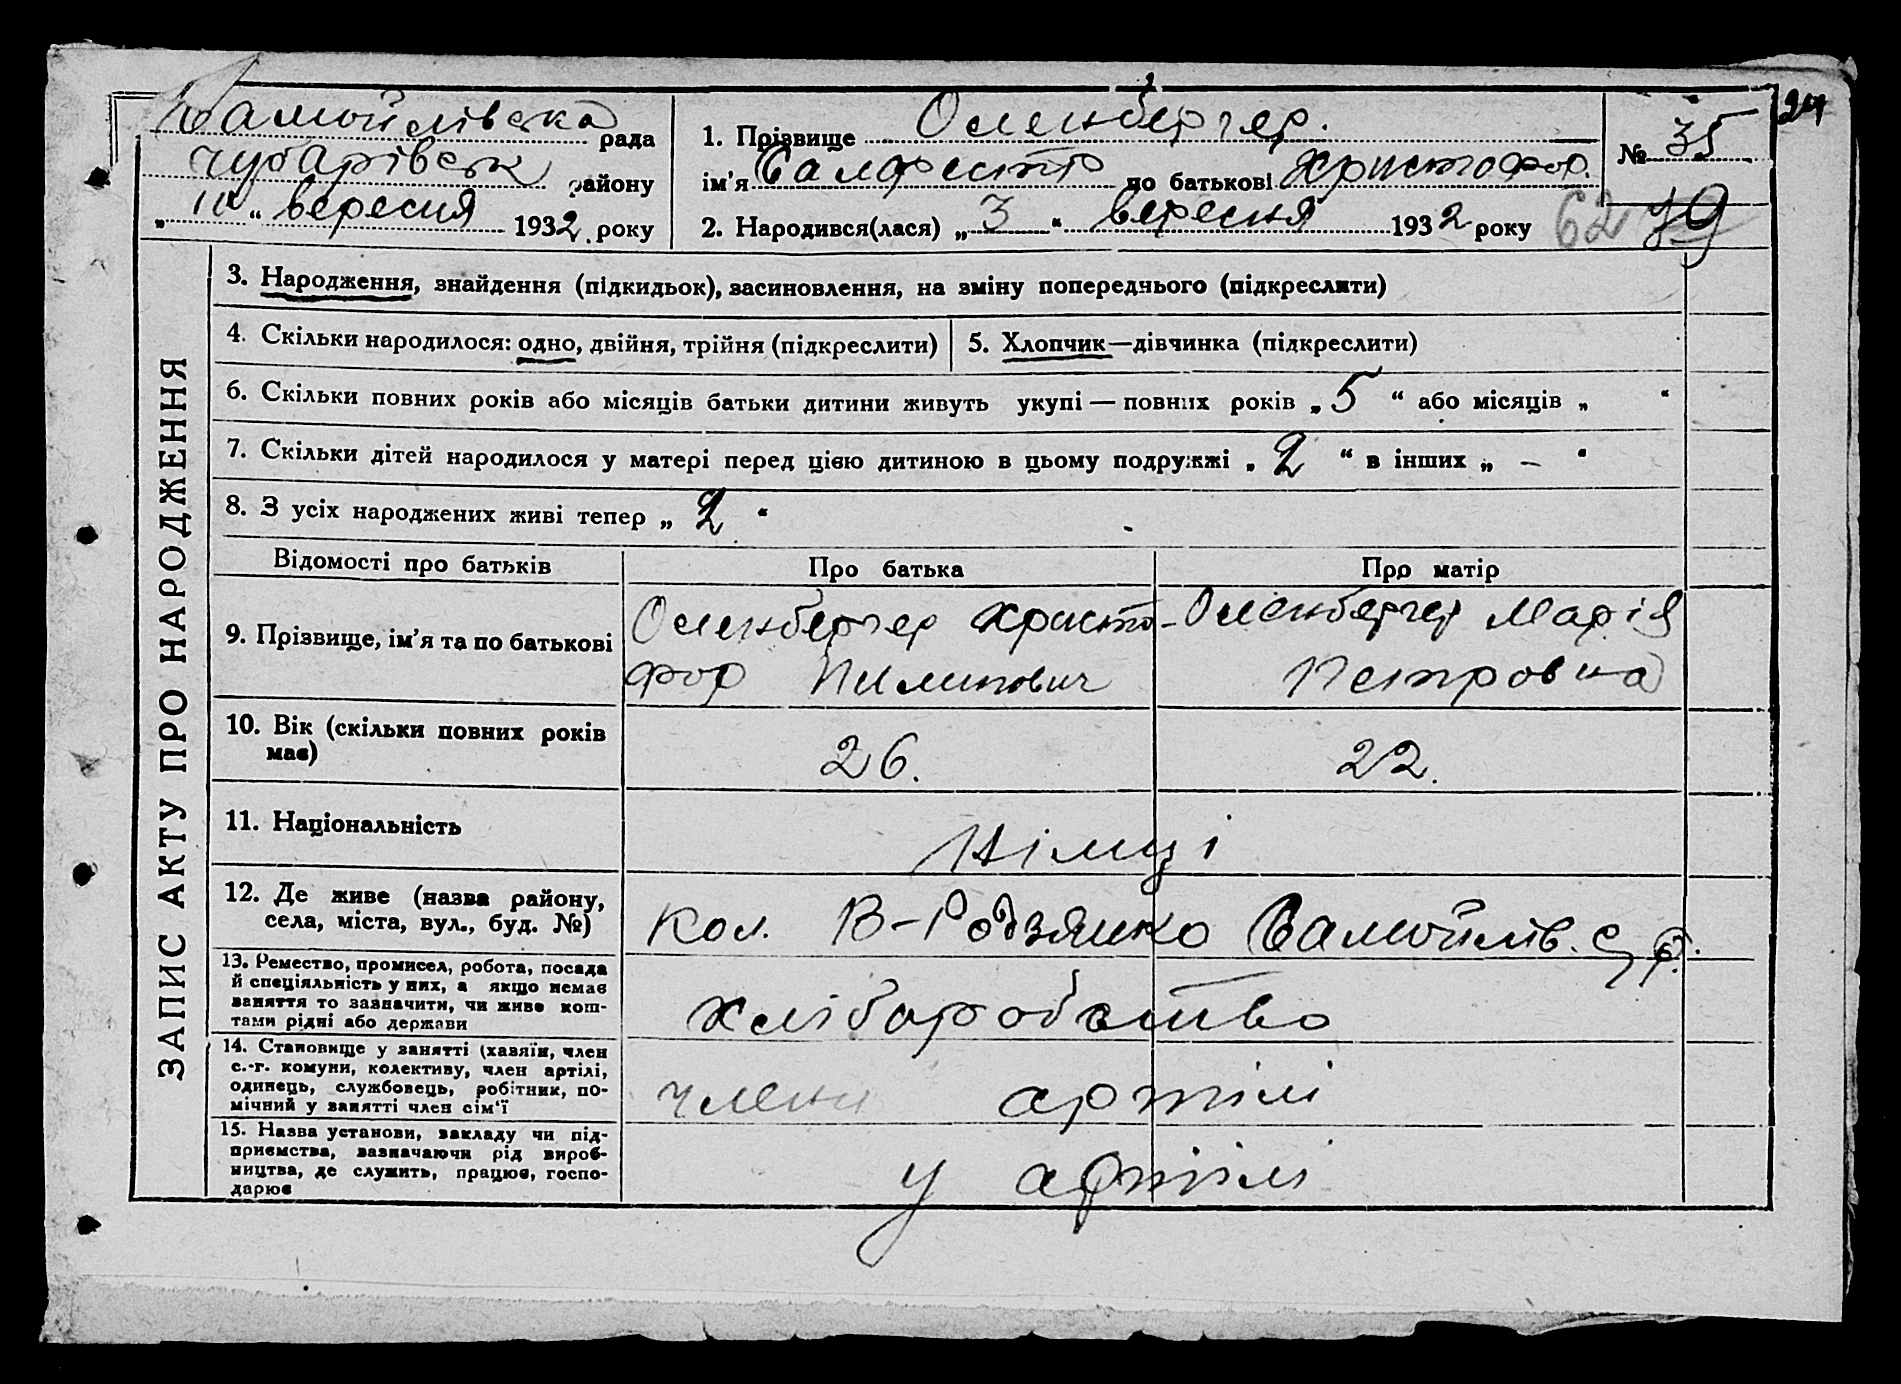 24
Самойлівська рада
Чубарівськ району
„10“ вересня 1932 року
1. Прізвище Оленбергер.
ім'я по батькові Христофор.
2. Народився(лася) „3“ вересня 1932 року
№ 35
62 79
ЗАПИС АКТУ ПРО НАРОДЖЕННЯ
3. Народження, знайдення (підкидьок), засиновлення, на зміну попереднього (підкреслити)
4. Скільки народилося: одно, двійня, трійня (підкреслити)
5. Хлопчик—дівчинка (підкреслити)
6. Скільки повних років або місяців батьки дитини живуть укупі — повних років „5“ або місяців „ “
7. Скільки дітей народилося у матері перед цією дитиною в цьому подружжі „2“ в інших „ – “
8. З усіх народжених живі тепер „2“
Відомості про батьків
Про батька
Про матір
9. Прізвище, ім'я та по батькові
Оленбергер Христо-
фор Пилипович
Оленбергер Марія
Петровна
10. Вік (скільки повних років
має)
26.
22.
11. Національність
Німці
12. Де живе (назва району,
села, міста, вул., буд. №)
Кол. В-Родзянко Самойлів. с/р.
13. Ремество, промисел, робота, посада
й спеціяльність у них, а якщо немає
заняття то зазначити, чи живе кош-
тами рідні або держави
хліборобство
14. Становище у занятті (хазяїн, член
с.-г. комуни, колективу, член артілі,
одинець, службовець, робітник, по-
мічний у занятті член сім'ї
члени артілі
15. Назва установи, закладу чи під-
приємства, зазначаючи рід вироб-
ництва, де служить, працює, госпо-
дарює
у артілі